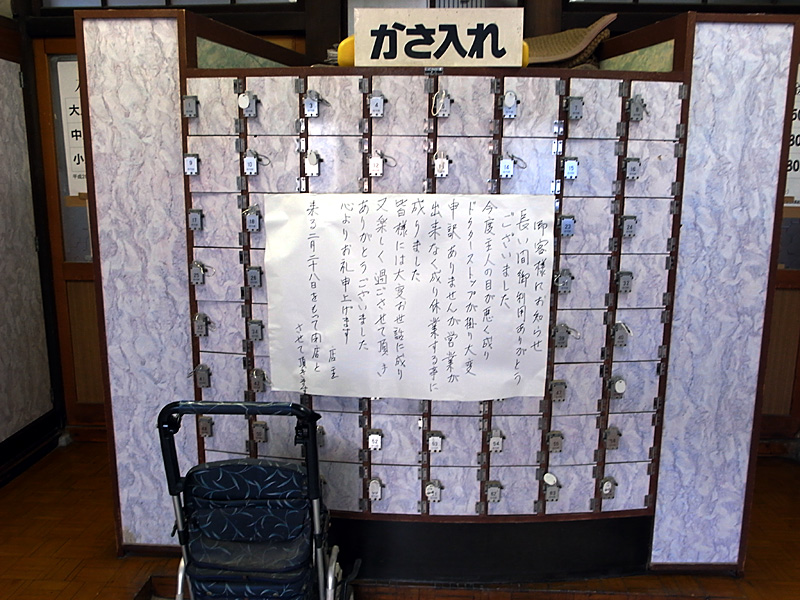 かさ入れ
御客様にお知らせ
長い間御利用ありがとう
ございました
今度主人の目が悪く成り
ドクターストップが掛り大変
申訳ありませんが営業が
出来なく成り休業する事に
成りました
皆様には大変お世話に成り
又楽しく過ごさせて頂き
ありがとうございました
心よりお礼申上げます
店主
来る二月二十八日をもって閉店と
させて頂きます
大
中
小